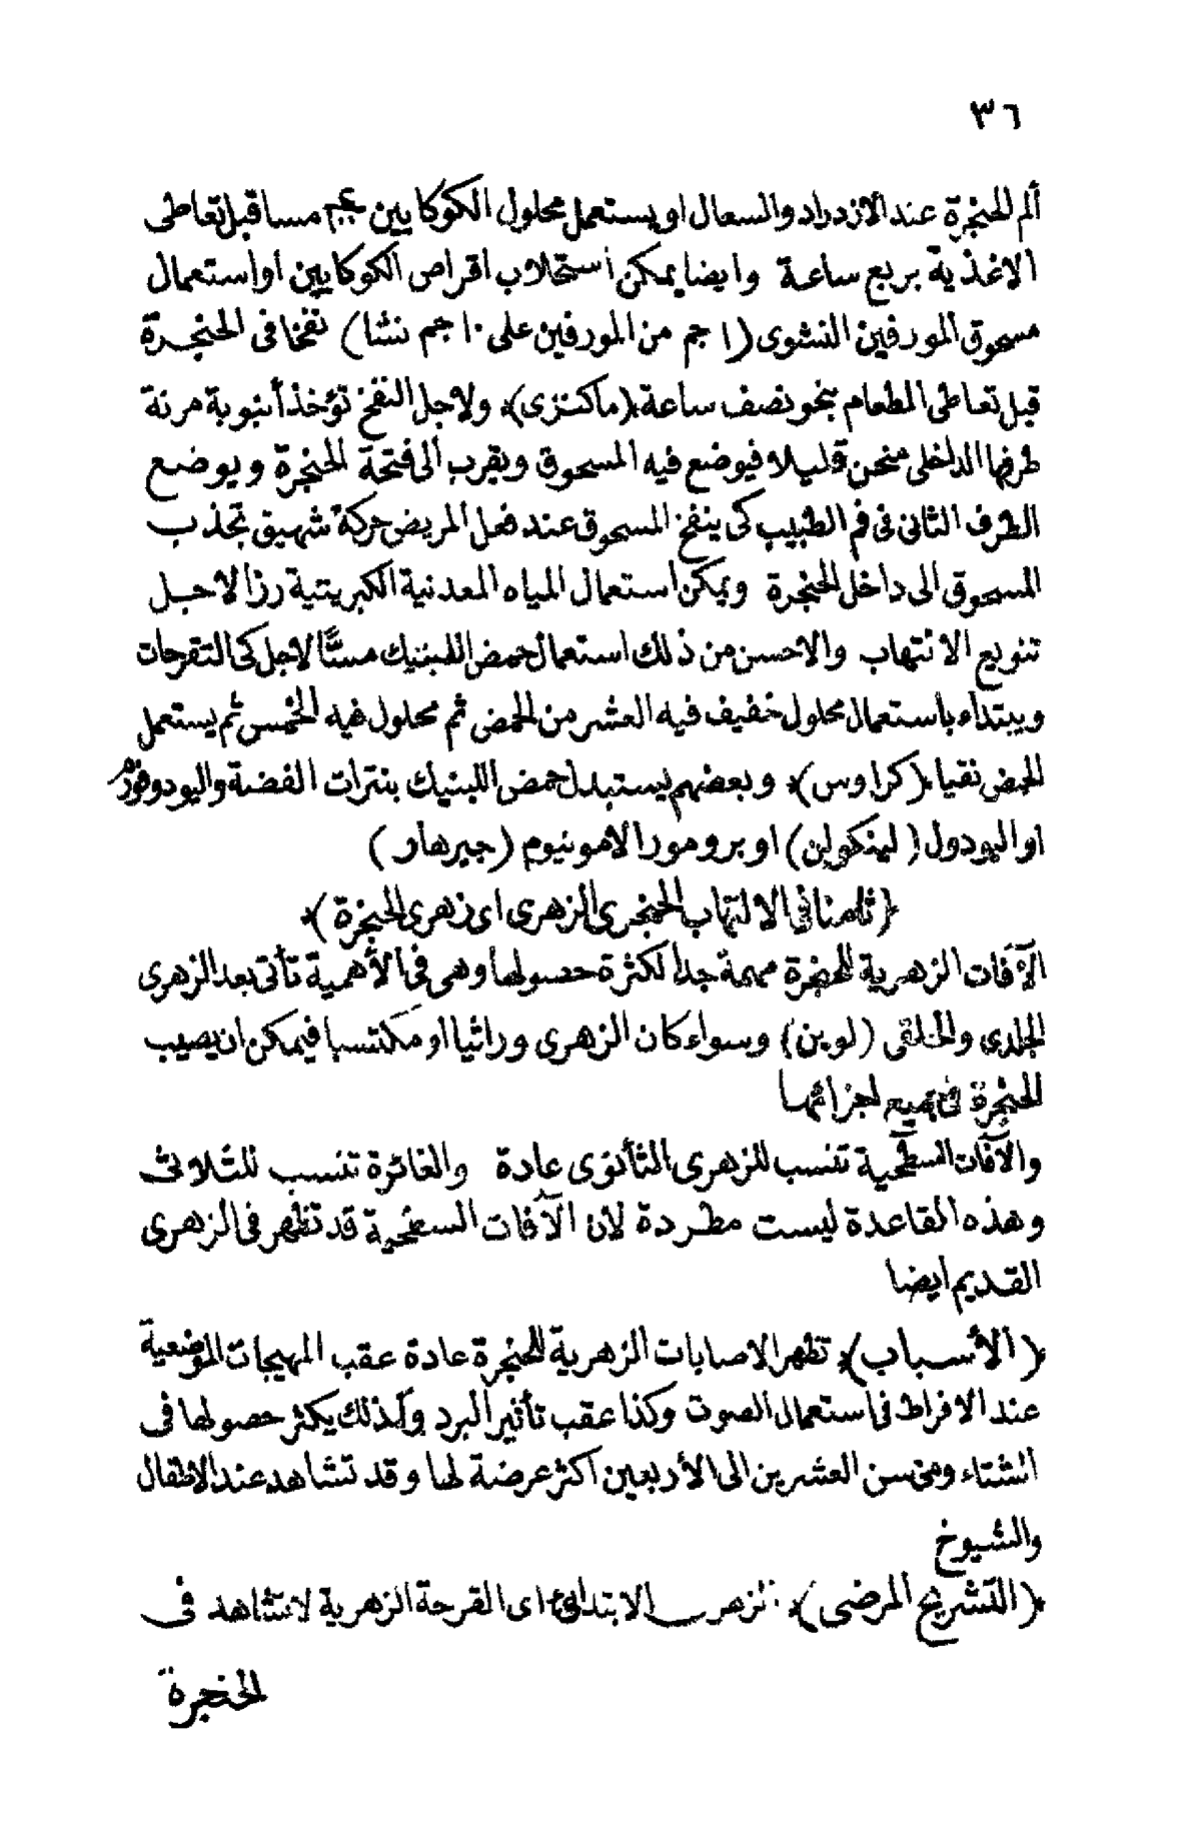 ٣٦
ألم الحنجرة عند الازدراد والسعال او يستعمل محلول الكوكايين مسا قبل تعاطى
الاغذية بربع ساعة وايضا يمكن استحلاب اقراص الكوكايين او استعمال
مسحوق المورفين النشوى (١ جم من المورفين على ١٠ جم نشا) نفخا فى الحنجرة
قبل تعاطى الطعام بنحو نصف ساعة (ماكنزى) ولاجل النفخ تؤخذ أنبوبة مرنة
طرفها الداخلى منحن قليلا فيوضع فيه المسحوق ويقرب الى فتحة الحنجرة ويوضع
الطرف الثانى فى فم الطبيب كى ينفخ المسحوق عند فعل المريض حركة شهيق تجذب
المسحوق الى داخل الحنجرة ويمكن استعمال المياه المعدنية الكبريتية رزا لاجل
تنويع الالتهاب والاحسن من ذلك استعمال حمض اللبنيك مسًّا لاجل كى التقرحات
ويبتداء باستعمال محلول خفيف فيه العشر من الحمض ثم محلول فيه الخمس ثم يستعمل
الحمض نقيا (كراوس) وبعضهم يستبدل حمض اللبنيك بنترات الفضة واليودوفورم
او اليودول (لينكولن) او برومورا لامونيوم (جيرهار)
(ثامنا فى الالتهاب الحنجرى الزهرى اى زهرى الحنجرة)
الآفات الزهرية للحنجرة مهمة جدا لكثرة حصولها وهى فى الأهمية تأتى بعد الزهرى
الجلدى والحلقى (لوين) وسواء كان الزهرى وراثيا او مكتسبا فيمكن ان يصيب
الحنجرة فى جميع اجزائها
والآفات السطحية تنسب للزهرى الثأنوى عادة والغائرة تنسب للثلاثى
وهذه القاعدة ليست مطردة لان الآفات السطحية قد تظهر فى الزهرى
القديم ايضا
(الأسباب) تظهر الاصابات الزهرية للحنجرة عادة عقب المهيجات الموضعية
عند الافراط فى استعمال الصوت وكذا عقب تأثير البرد ولذلك يكثر حصولها فى
الشتاء ومن سن العشرين الى الأربعين اكثر عرضة لها وقد تشاهد عند الاطفال
والشيوخ
(التشريح المرضى) الزهرى الابتدائى اى القرحة الزهرية لا تشاهد فى
الحنجرة